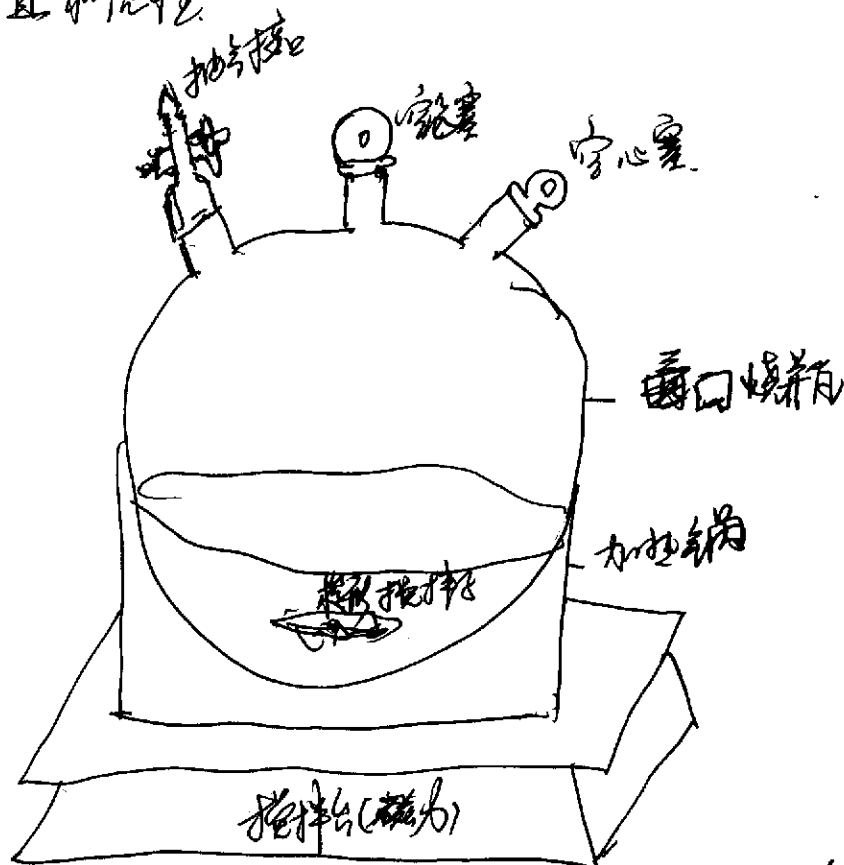 抽气接口
空心塞
空心塞
口烧瓶
加热锅
搅拌子
搅拌台(磁力)